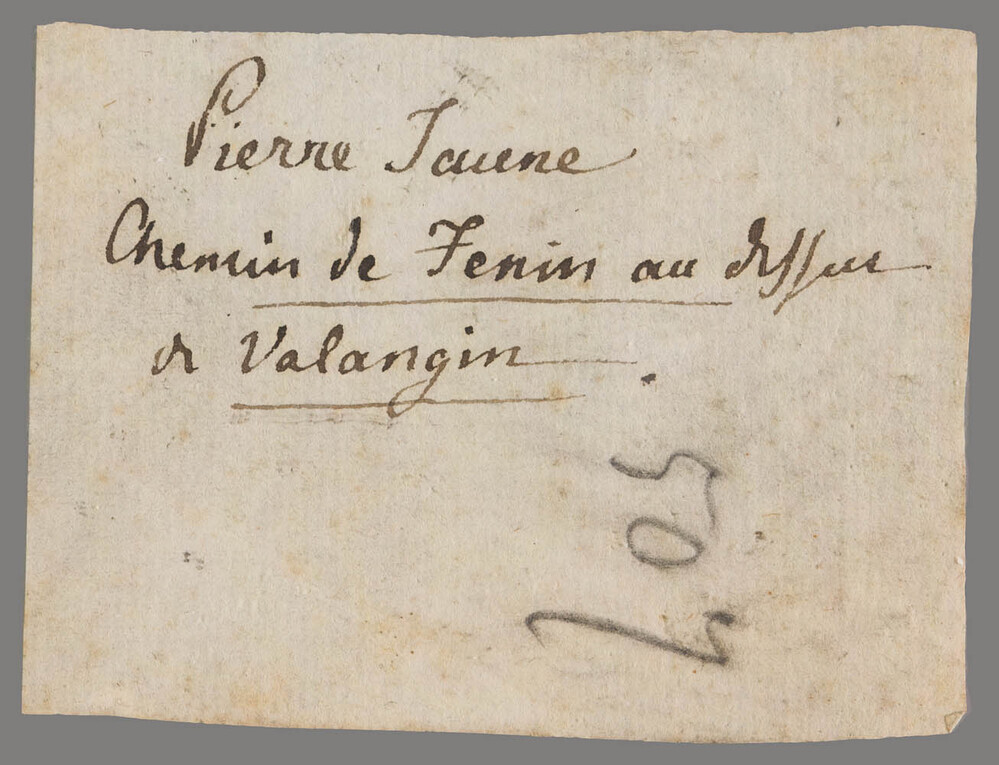 Pierre Jaune
Chemin de Fenin au dessus
de Valangin.
205